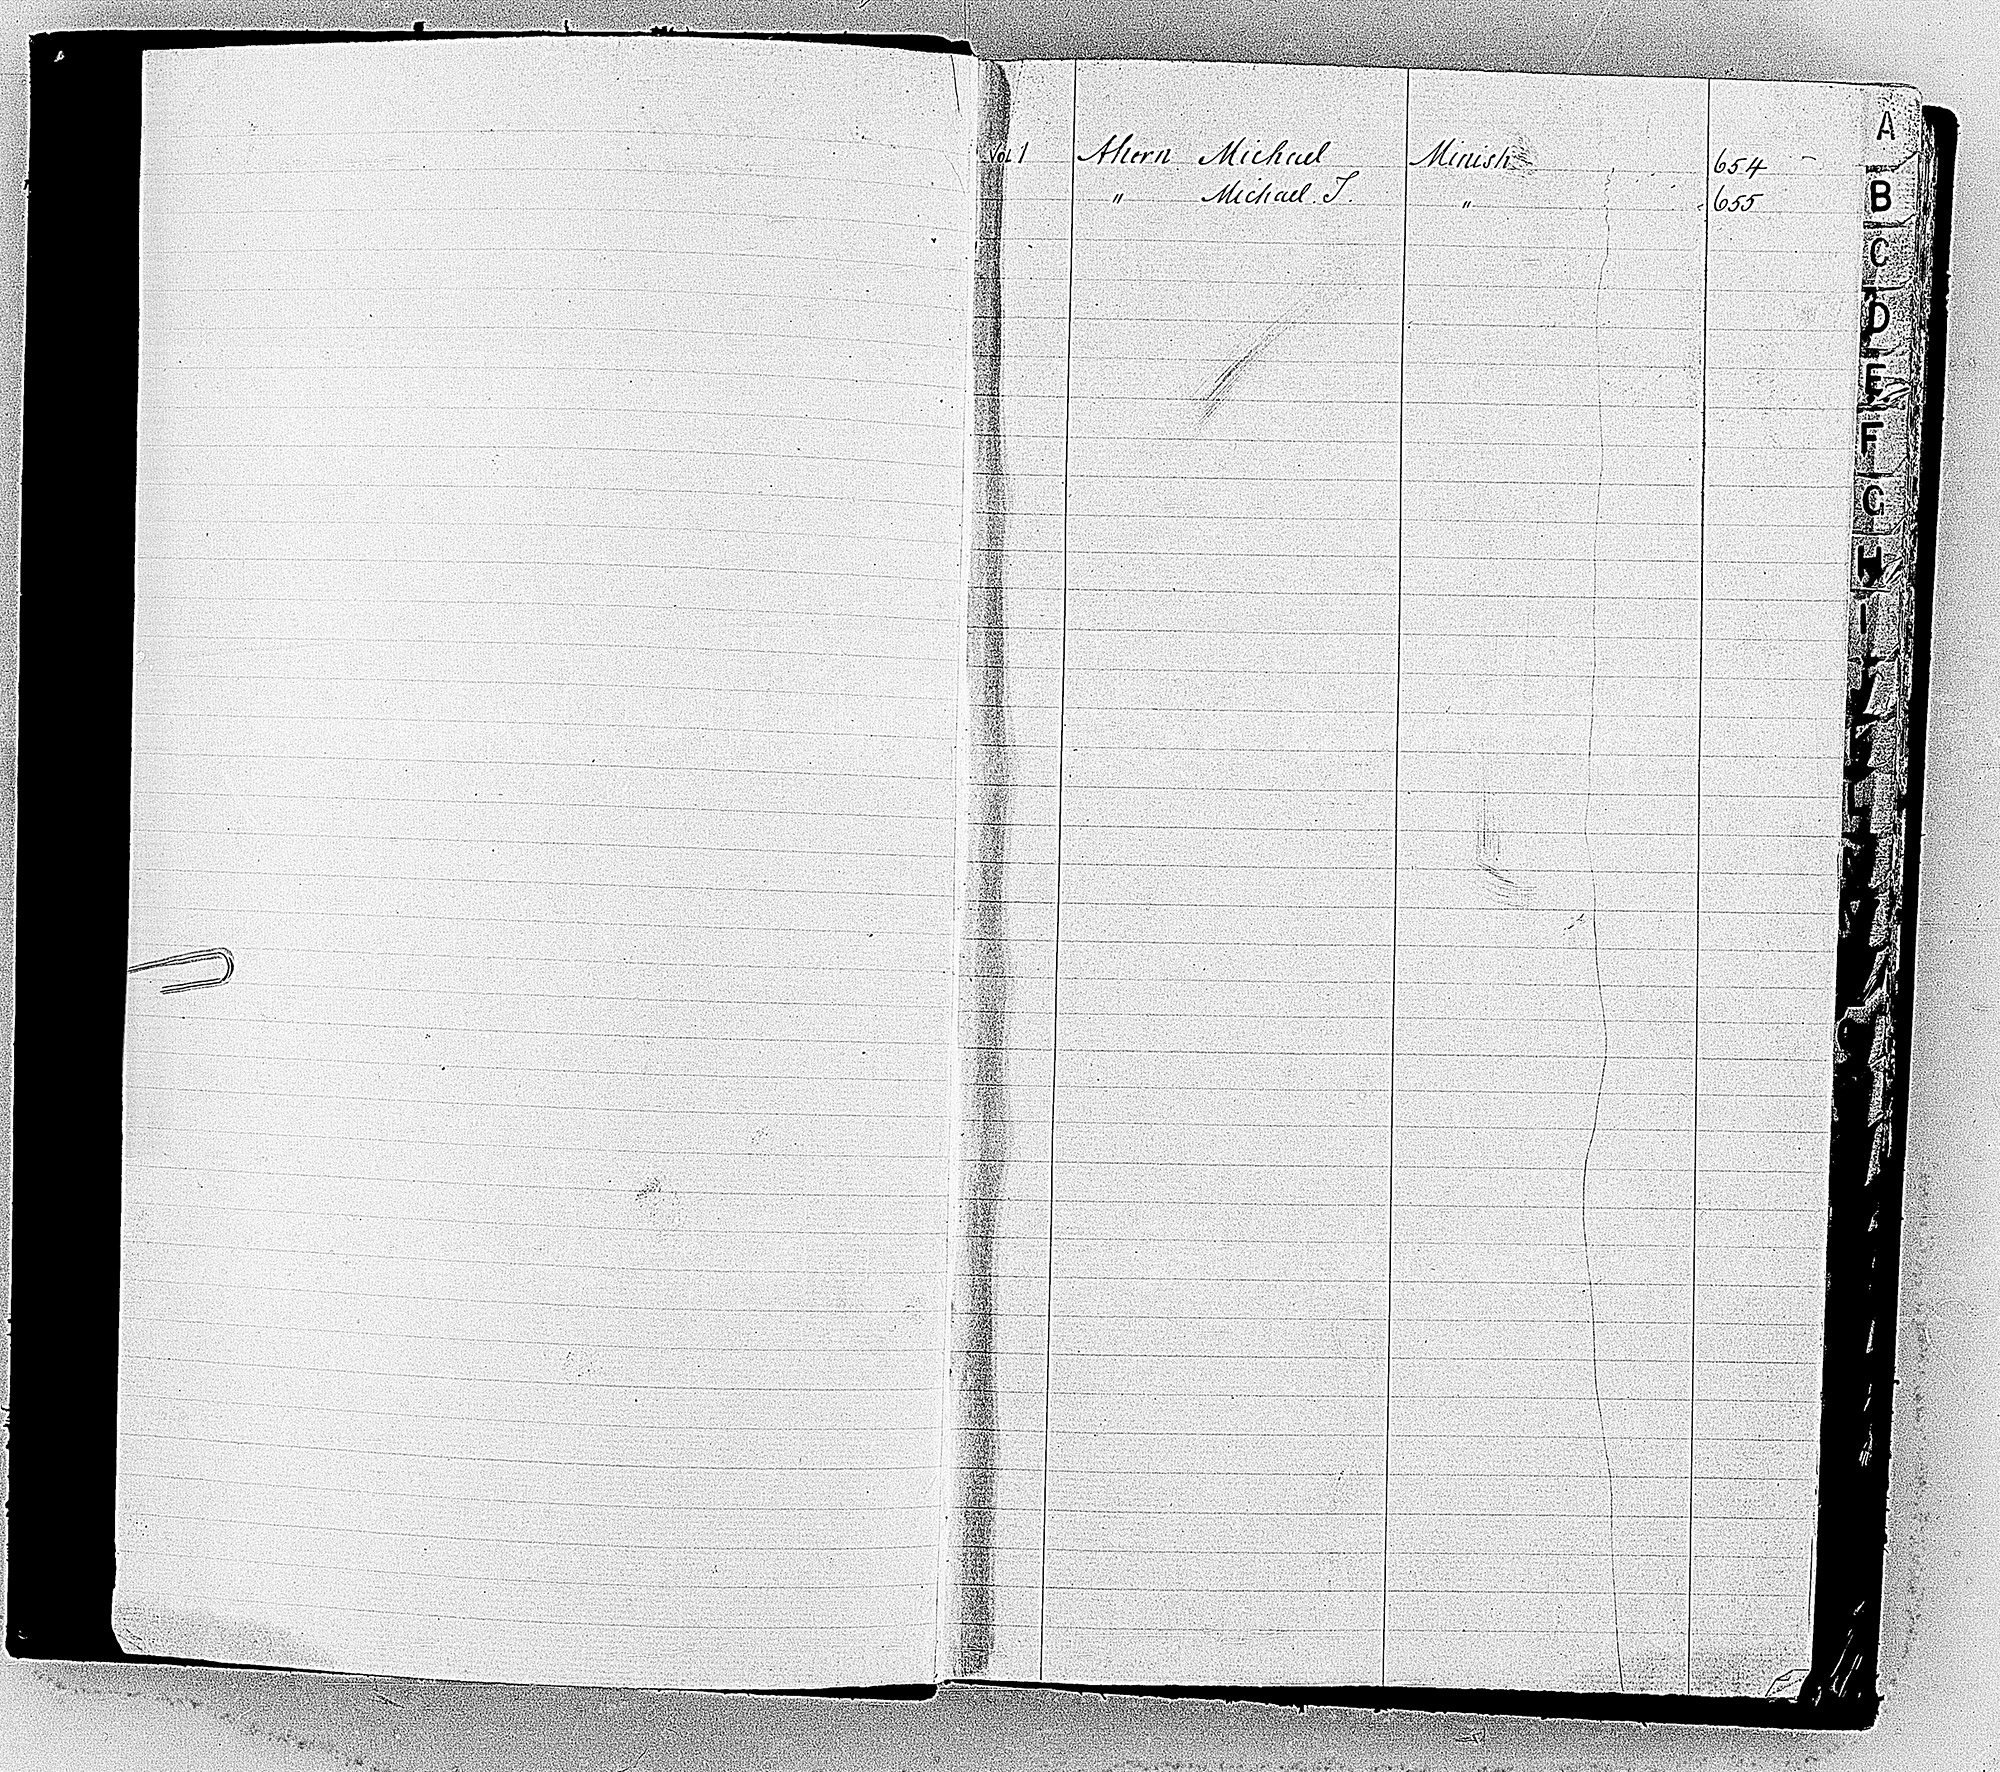 Vol 1 Ahern Michael Minish 654
" Michael. J. " 655
A
B
C
D
E
F
G
H
I
L